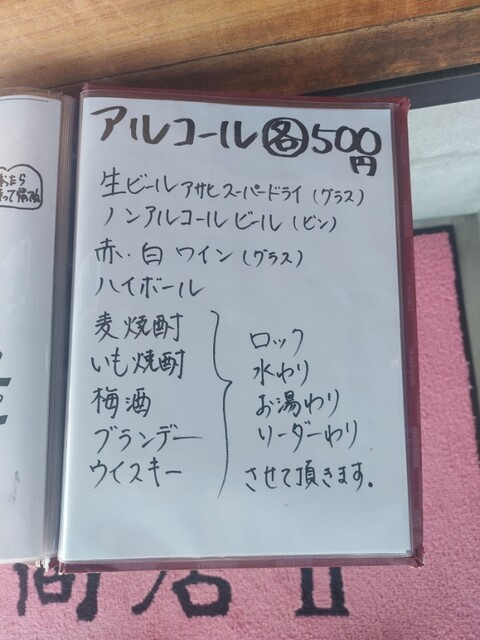 アルコール 各 500円
生ビール アサヒスーパードライ (グラス)
ノンアルコールビール (ビン)
赤・白 ワイン (グラス)
ハイボール
麦焼酎
いも焼酎
梅酒
ブランデー
ウイスキー
ロック
水わり
お湯わり
ソーダーわり
させて頂きます。
商店